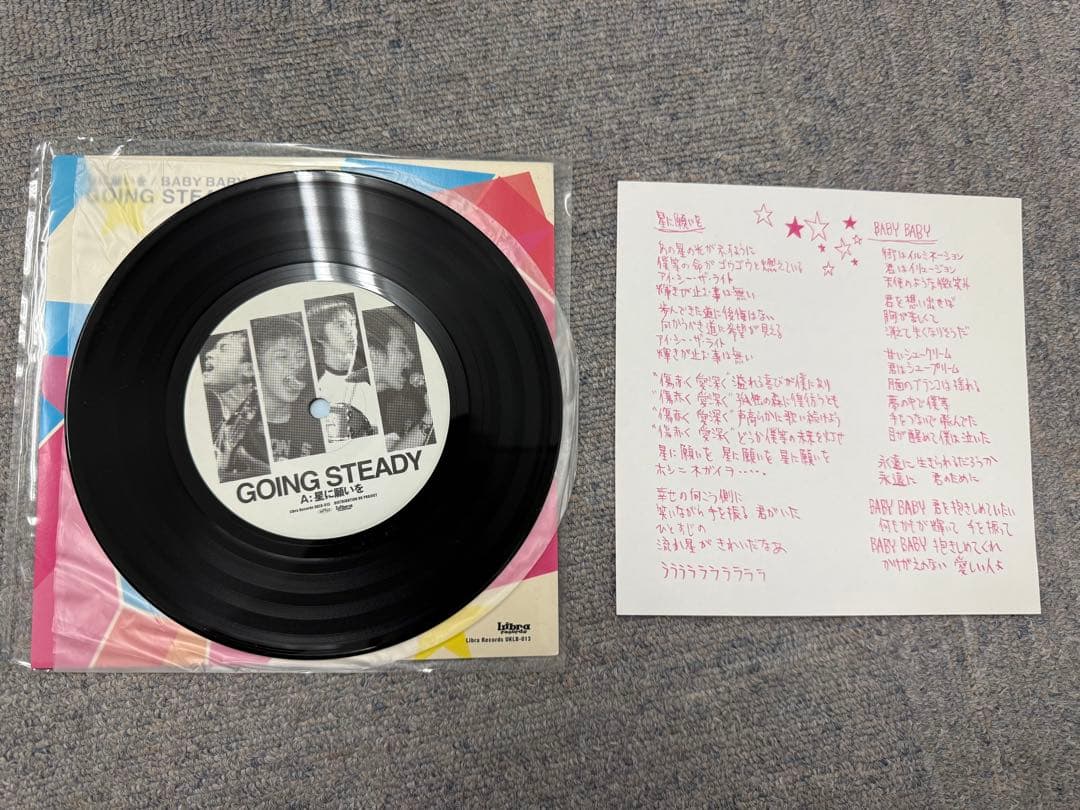 に願いを / BABY BABY
GOING STEADY
GOING STEADY
A:星に願いを
Libra Records UKLB-013 DISTRIBUTION UK PROJECT
Libra records
Libra Records UKLB-013
星に願いを
あの星の光が示すように
僕等の命がゴウゴウと燃えている
アイ・シー・ザ・ライト
輝きが止む事は無い
歩んできた道に後悔はない
何かうべき道に希望が見える
アイ・シー・ザ・ライト
輝きが止む事は無い
“傷赤く 愛深く” 溢れる喜びが僕にあり
“傷赤く 愛深く” 孤独の森に 彷徨うとも
“傷赤く 愛深く” 声高らかに歌い続けよう
“傷赤く 愛深く” どうか僕等の未来を灯せ
星に願いを 星に願いを 星に願いを
ホシニネガイヲ・・・・・
幸せの向こう側に
笑いながら手を振る 君がいた
ひとすじの
流れ星が きれいだなあ
ううううううううう
BABY BABY
街はイルミネーション
君はイリュージョン
天使のような微笑み
君を想い出せば
胸が苦しくて
消えて失くなりそうだ
甘いシュークリーム
君はシュープリーム
胸のブランコは揺れる
夢の中で僕等
手をつないで飛んでた
目が醒めて僕は泣いた
永遠に生きられるだろうか
永遠に 君のために
BABY BABY 君を抱きしめていたい
何もかもが輝いて 手を振って
BABY BABY 抱きしめてくれ
かけがえのない 愛しい人よ